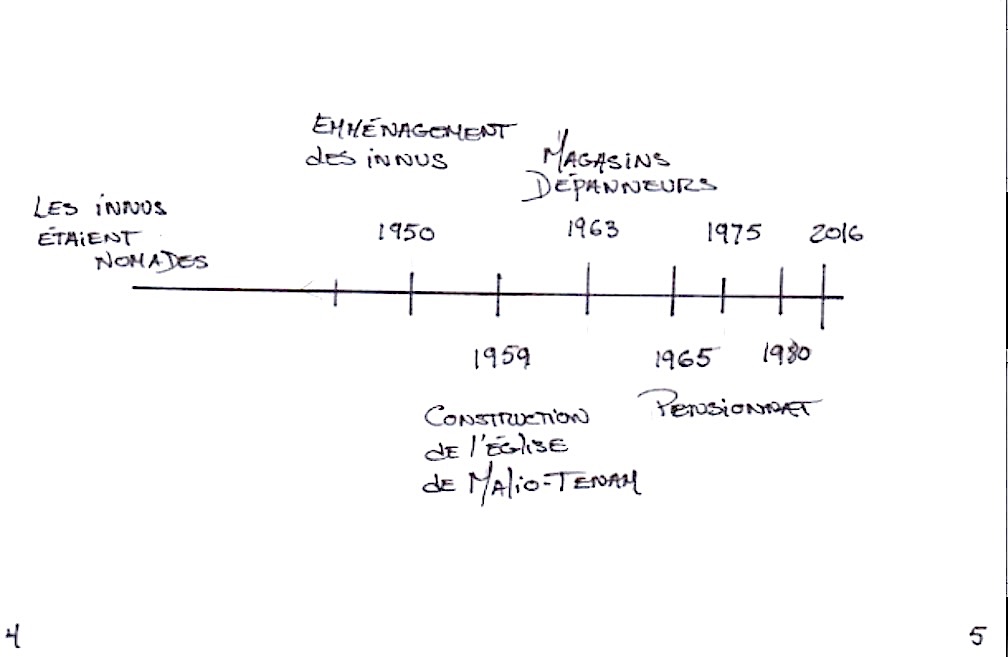 EMMÉNAGEMENT
des INNUS
MAGASINS
DÉPANNEURS
LES INNUS
ÉTAIENT
NOMADES
1950
1963
1975
2016
1959
1965
1980
CONSTRUCTION
de l'ÉGLISE
de MALIO-TENAM
PENSIONNAT
4
5